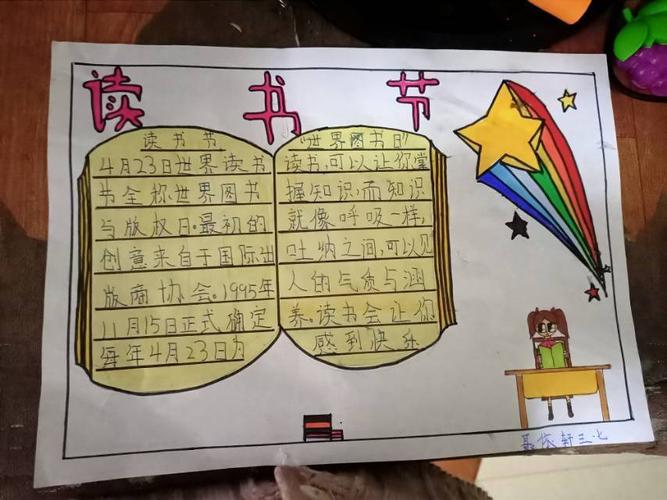 读书节
读书节
4月23日世界读书
节全称世界图书
与版权日。最初的
创意来自于国际出
版商协会。1995年
11月15日正式确定
每年4月23日为
"世界图书日"
读书,可以让你掌
握知识,而知识
就像呼吸一样,
吐纳之间,可以见
人的气质与涵
养。读书会让你
感到快乐
轩三.七